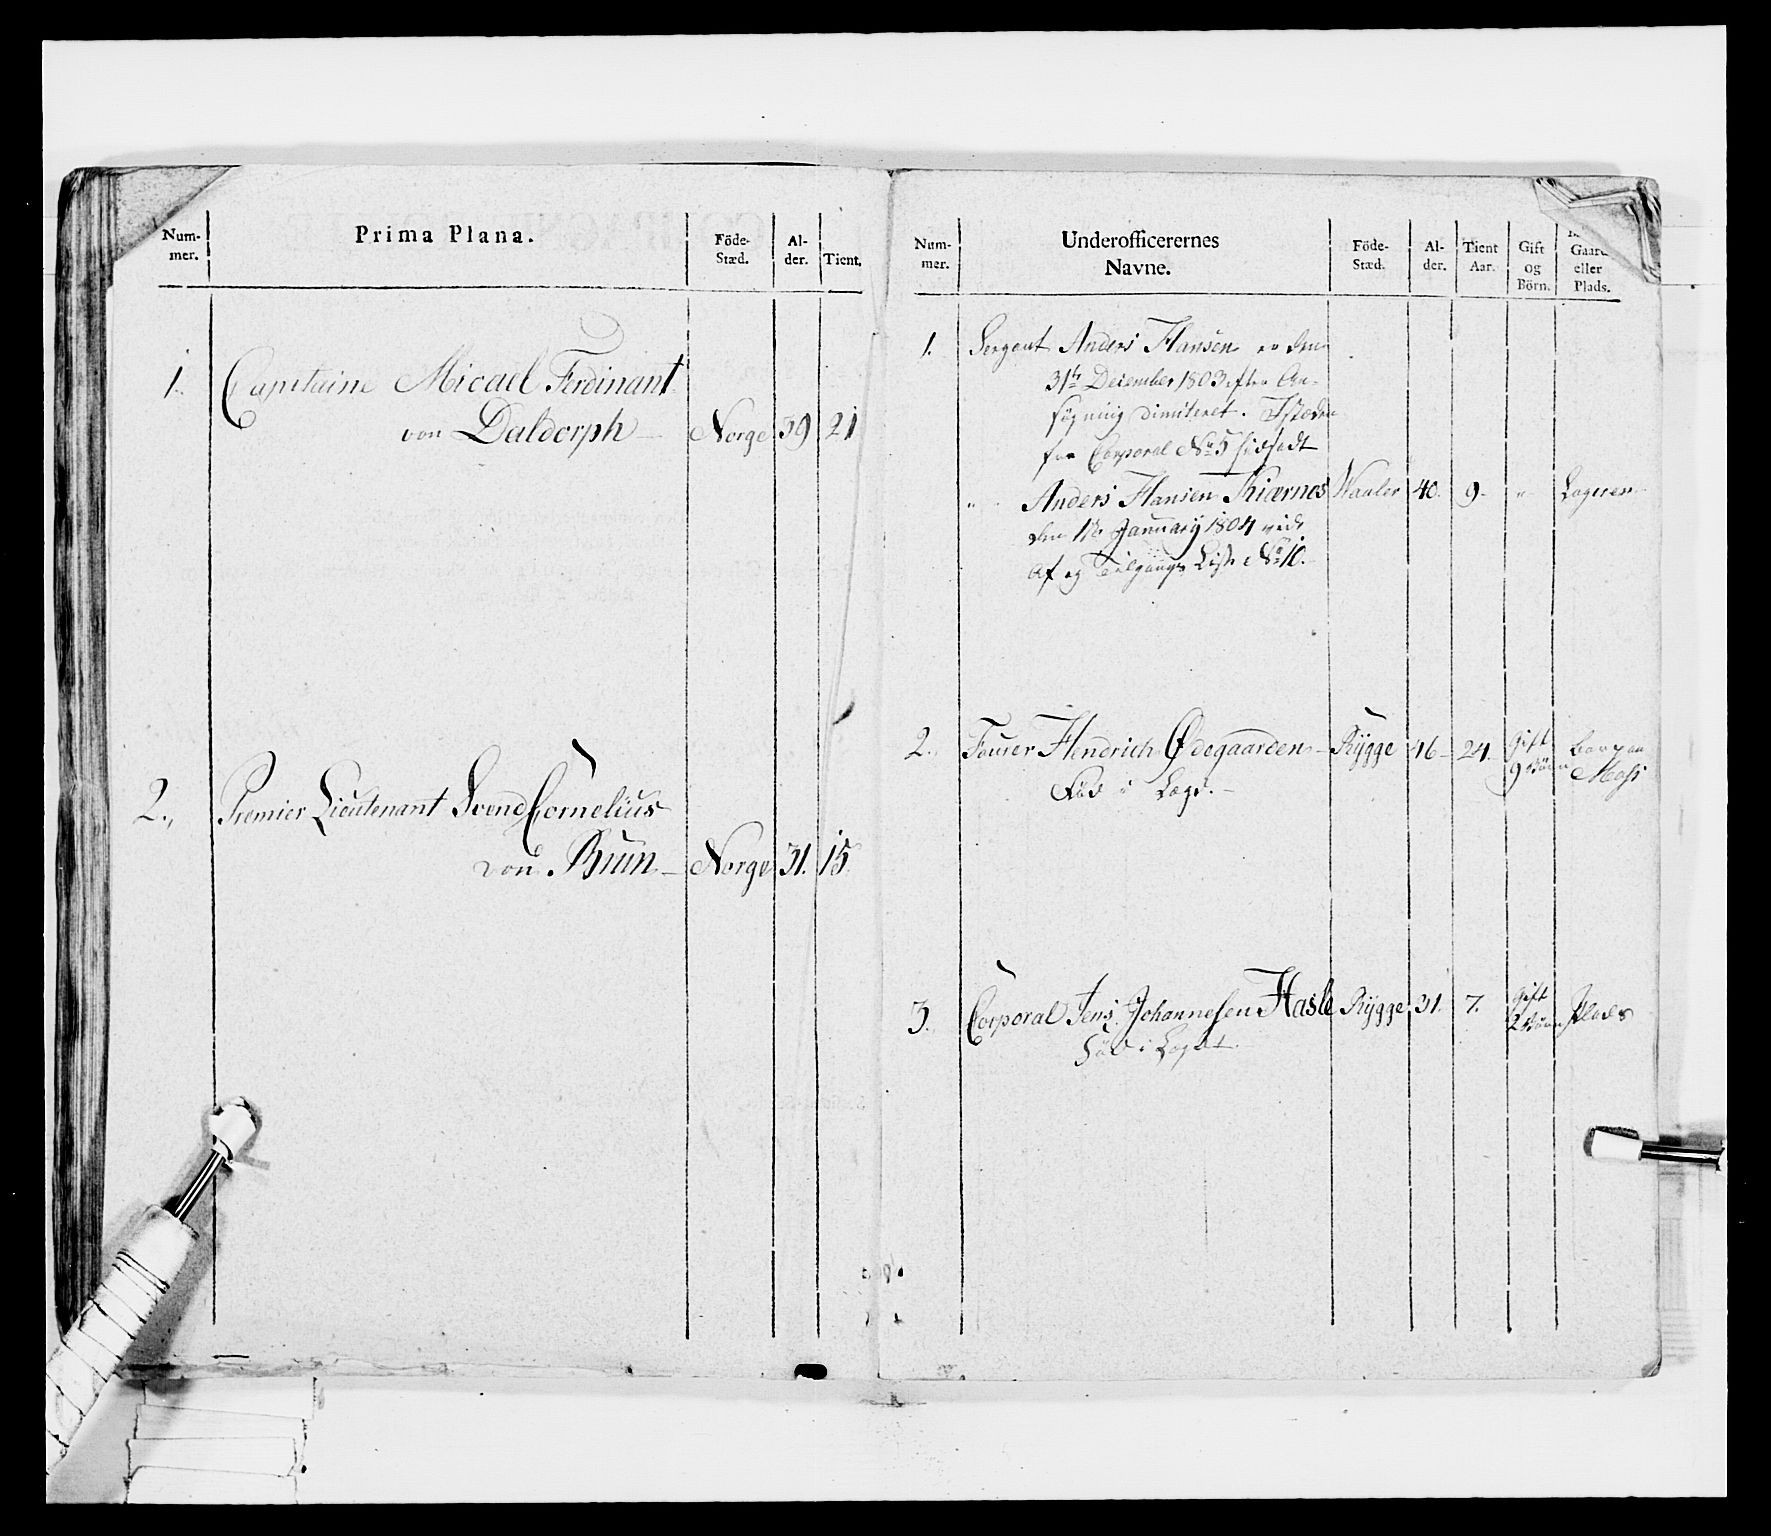 Num-
mer.
Prima Plana.
Föde-
Stæd.
Al-
der.
Tient.
1. Capitaine Micael Ferdinant
von Daldorph — Norge 39 21
2. Premier Lieutenant Svend Cornelius
von Bruun — Norge 31. 15
Num-
mer.
Underofficerernes
Navne.
Föde-
Stæd.
Al-
der.
Tient
Aar.
Gift
og
Börn.
Gaard
eller
Plads.
1. Sergant Anders Hansen er den
31te December 1803 efter An-
søgning dimiteret. Isteden
for Corporal No 5
" Anders Hansen Kiærnes Waaler 40. 9. "
den 1te January 1804 vide
Af og Tilgangs Liste No 10.
2. Fourer Hendrich Ødegaarden – Rygge 46 – 24. Gift
9 Børn Moss
Fød i Lægd. –
3. Corporal Jens Johannesen Hasle Rygge 31. 7. Gift
2 Børn Plads
Fød i Lægdet